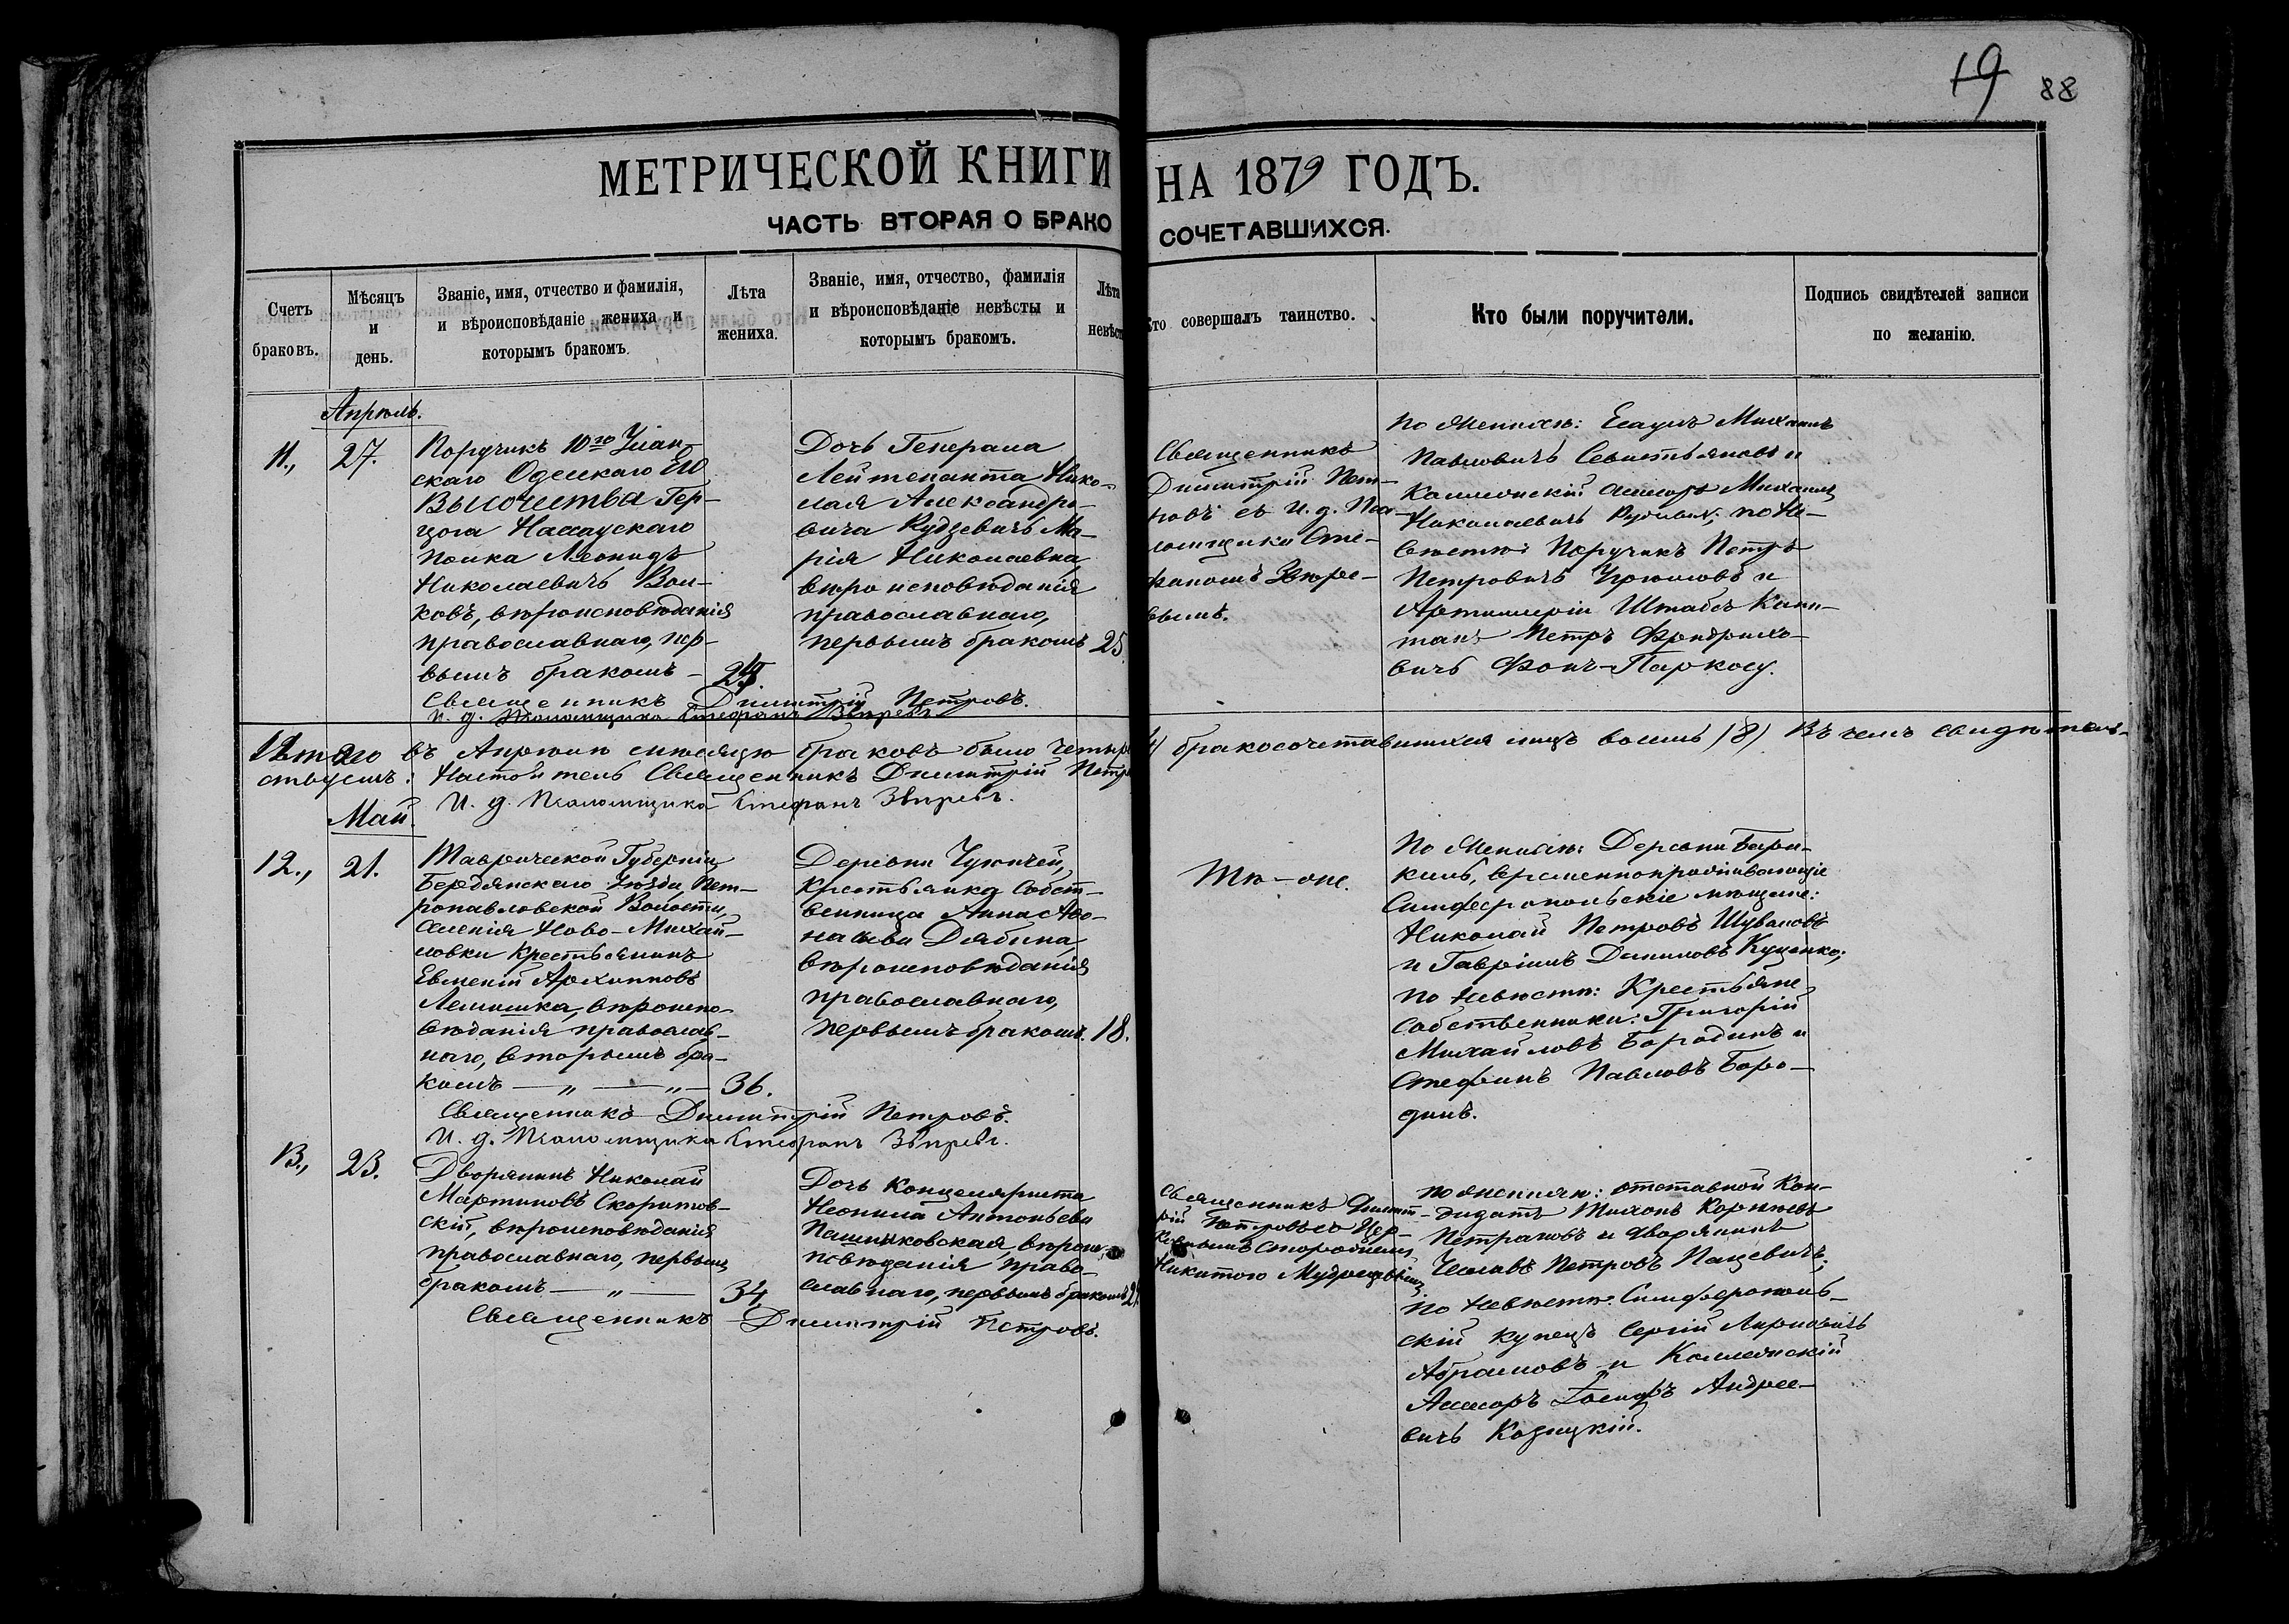 19 88
МЕТРИЧЕСКОЙ КНИГИ НА 1879 ГОДЪ.
ЧАСТЬ ВТОРАЯ О БРАКОСОЧЕТАВШИХСЯ.
Счетъ
браковъ.
Мѣсяцъ
и
день.
Званіе, имя, отчество и фамилія,
и вѣроисповѣданіе жениха и
которымъ бракомъ.
Лѣта
жениха.
Званіе, имя, отчество, фамилія
и вѣроисповѣданіе невѣсты и
которымъ бракомъ.
Лѣта
невѣст
Кто совершалъ таинство.
Кто были поручители.
Подпись свидѣтелей записи
по желанію.
Апрѣль.
11., 27.
Поручикъ 10го Улан-
скаго Одесскаго Его
Высочества Гер-
цога Нассаускаго
полка Леонидъ
Николаевичъ Вол-
ковъ, вѣроисповѣданія
православнаго, пер-
вымъ бракомъ –
Дочь Генерала
Лейтенанта Нико-
лая Александро-
вича Рудзевичъ Ма-
рія Николаевна,
вѣроисповѣданія
православнаго,
первымъ бракомъ 25.
Священникъ
Димитрій Пет-
ровъ съ и. д. Пса-
ломщика Сте-
фаномъ Звѣре-
вымъ.
По Женихѣ: Есаулъ Михаилъ
Павловичъ Севастьяновъ и
Коллежскій Ассесоръ Михаилъ
Николаевичъ по Не-
вѣстѣ: Поручикъ Петръ
Петровичъ и
Артиллеріи Штабсъ Капи-
танъ Петръ Фридрихо-
вичъ Фонъ-Паркосу.
Священникъ Димитрій Петровъ.
И. д. Псаломщика Стефанъ Звѣревъ
Итого въ Апрѣлѣ мѣсяцѣ браковъ было четыре (4) бракосочетавшихся лицъ восемь (8) Въ чемъ свидѣтель-
ствуемъ: Настоятель Священникъ Димитрій Петр
И. д. Псаломщика Стефанъ Звѣревъ.
Май.
12., 21.
Таврической Губерніи
Бердянскаго Уѣзда, Пет-
ропавловской Волости,
Селенія Ново-Михай-
ловки Крестьянинъ
Евменій Архиповъ
Лемишка, вѣроиспо-
вѣданія православ-
наго, вторымъ бра-
комъ — „ — „ — 36.
Деревни Чукичей,
Крестьянка Собст-
венница Анна Аѳо-
насьева Дябина,
вѣроисповѣданія
православнаго,
первымъ бракомъ. 18.
Тѣ-же.
По Женихѣ: Деревни
временнопроживающіе
Симферопольскіе мѣщане:
Николай Петровъ Шуваловъ
и Гавріилъ Даниловъ Куценко;
по Невѣстѣ: Крестьяне
Собственники: Григорій
Михайловъ Бородинъ и
Стефанъ Павловъ Боро-
динъ.
Священникъ Димитрій Петровъ.
И. д. Псаломщика Стефанъ Звѣревъ.
13., 23.
Дворянинъ Николай
Мартиновъ Скоритов-
скій, вѣроисповѣданія
православнаго, первымъ
бракомъ — „ — 34
Дочь Канцеляриста
Неонила Антоньева
Пашпыковская, вѣроис-
повѣданія право-
славнаго, первымъ бракомъ
Священникъ Димит-
рій Петровъ съ Цер-
ковнымъ Сторожемъ
Никитою
по женихѣ: отставной Кан-
дидатъ Тихонъ Корнѣевъ
Петраковъ и дворянинъ
Чеславъ Петровъ Пацевичъ;
по Невѣстѣ: Симферополь-
скій купецъ Сергій
Абрамовъ и Коллежскій
Ассесоръ Іосифъ Андрее-
вичъ Козицкій.
Священникъ Димитрій Петровъ.